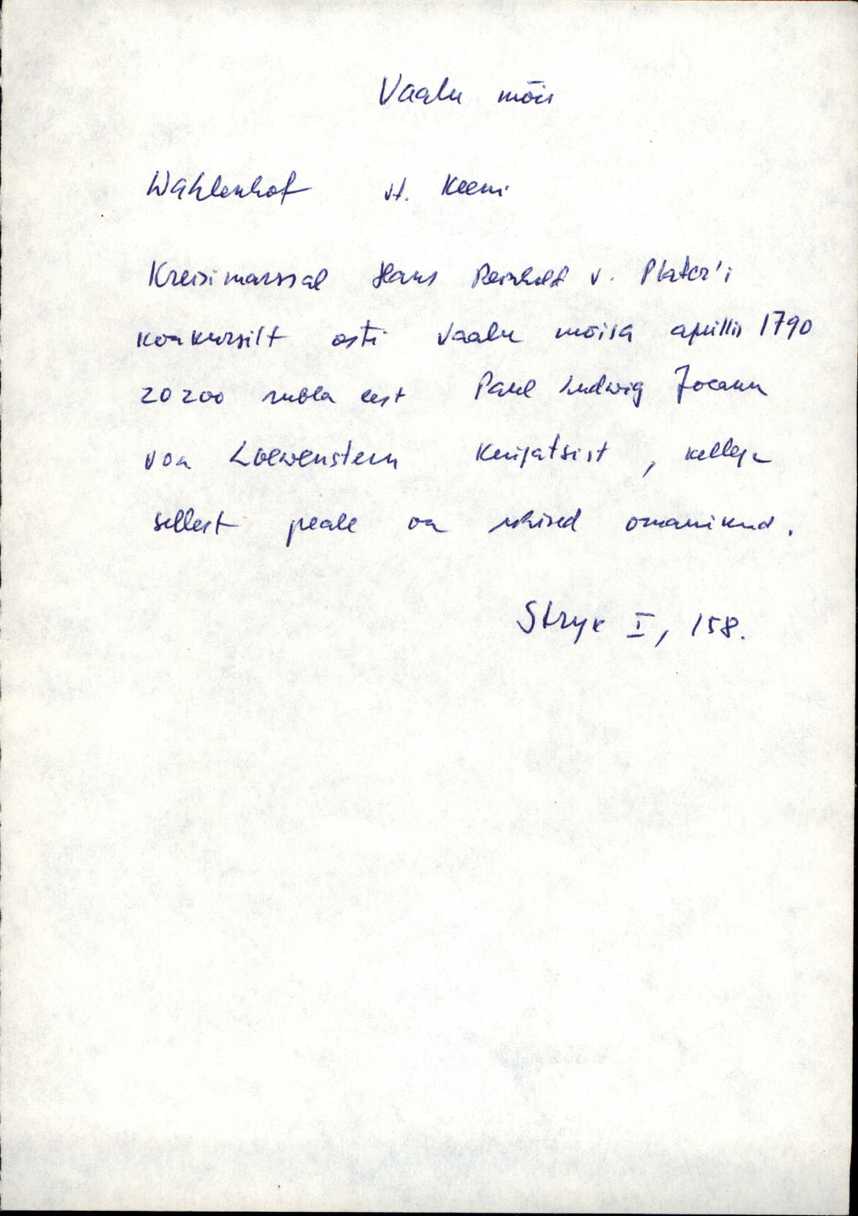 Vaalu mõis
Wahlenhof vt. Keeni
Kreisimarssal Hans Reinholt v. Plater'i
konkursilt osti Vaalu mõisa aprillis 1790
20200 rubla eest Paul Ludwig Joann
von Loewenstern Kuigatsist, kellega
sellest peale on ühised omanikud.
Stryk I, 158.